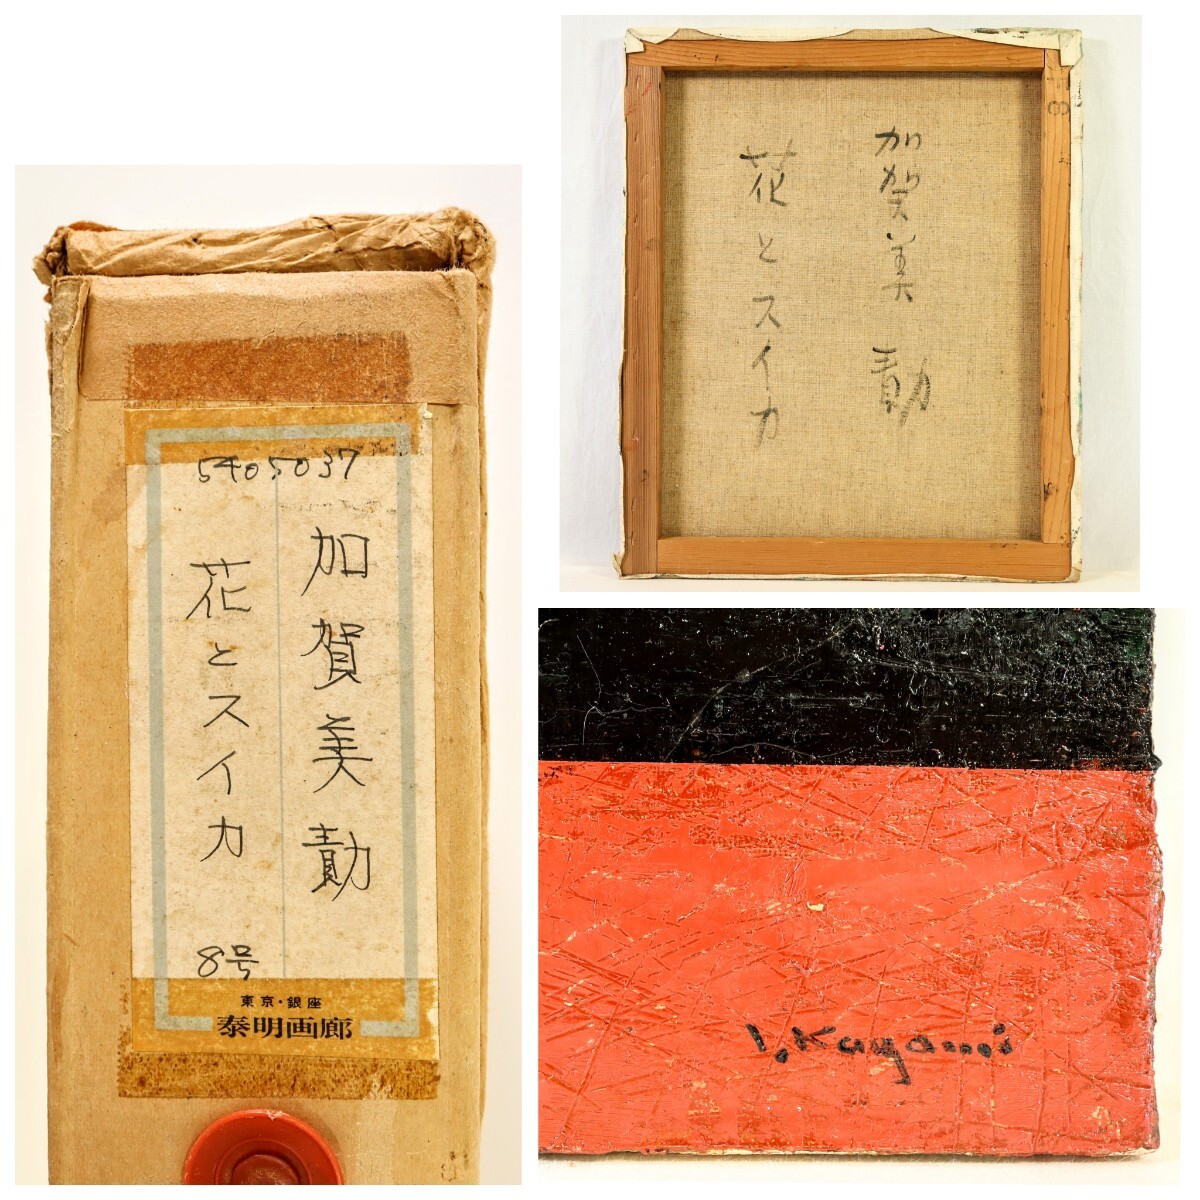 5405037
加賀美勣
花とスイカ
8号
東京・銀座
泰明画廊
加賀美 勣
花とスイカ
I. Kagami